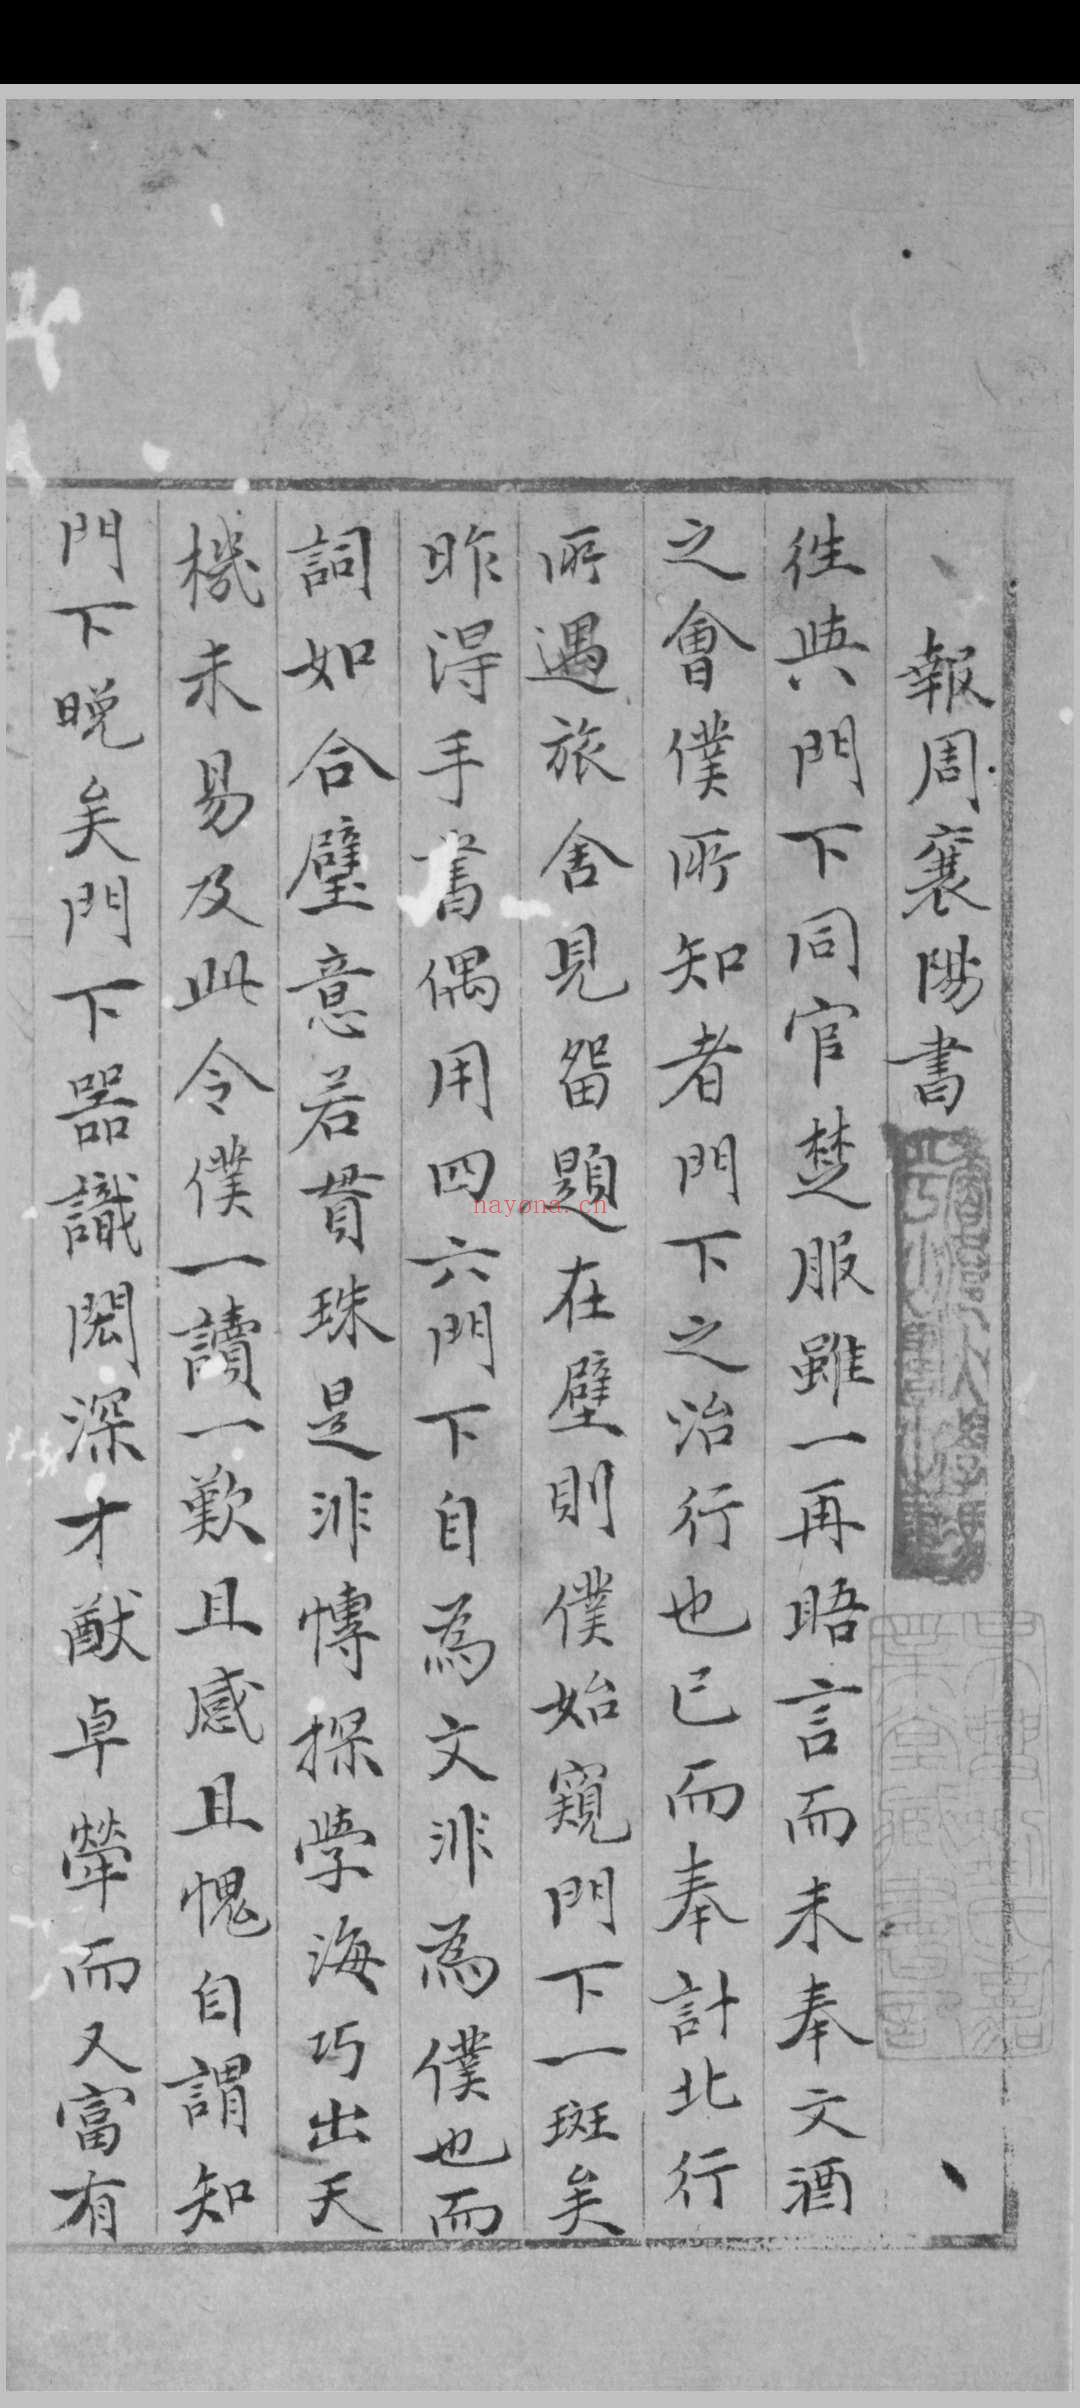 報周襄陽書
徃與門下同官楚服雖一再晤言而未奉文酒
之會僕所知者門下之治行也已而奉計北行
所遇旅舍見畱題在壁則僕始窺門下一斑矣
昨淂手書偶用四六門下自為文非為僕也而
詞如合璧意若貫珠是非愽探學海巧出天
機未易及此令僕一讀一歎且感且愧自謂知
門下晚矣門下器識閎深才猷卓犖而又富有
nayona.cn